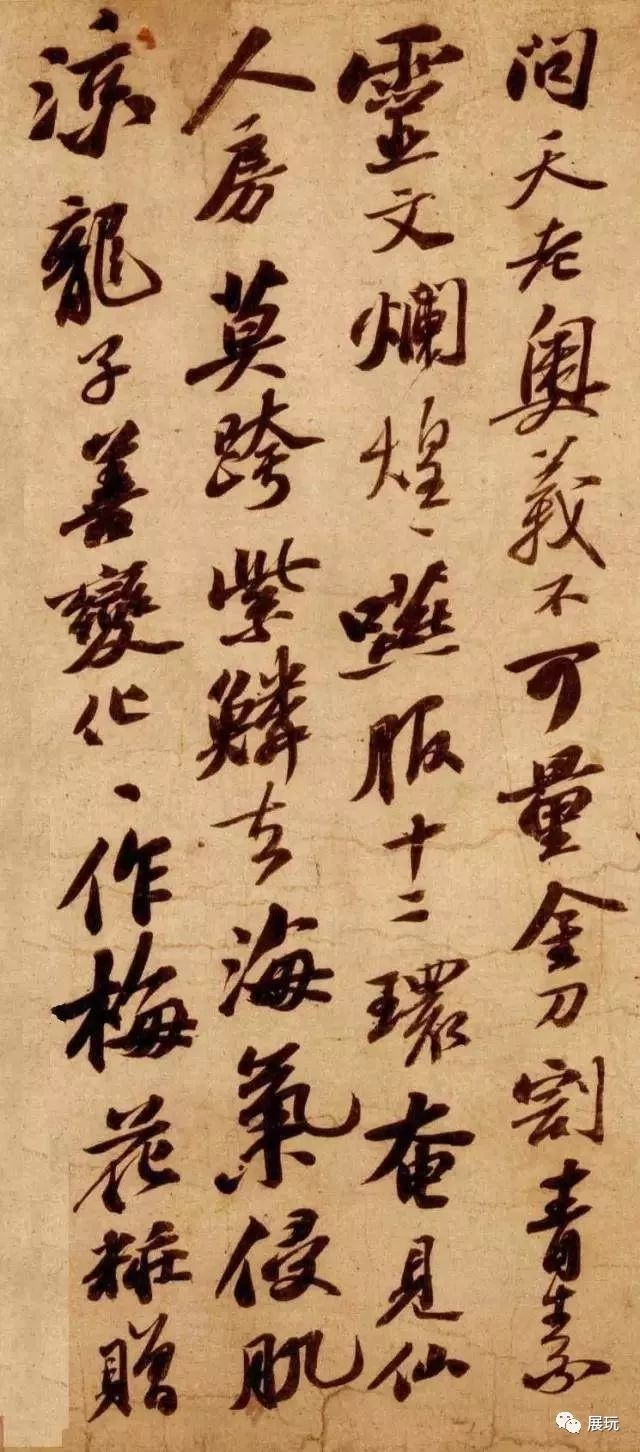 问天老奥義不可量金刀割青素
靈文爛煌〻嚥服十二環奄見仙
人房莫跨紫鱗去海氣侵肌
涼龍子善變化〻作梅花粧贈
展玩